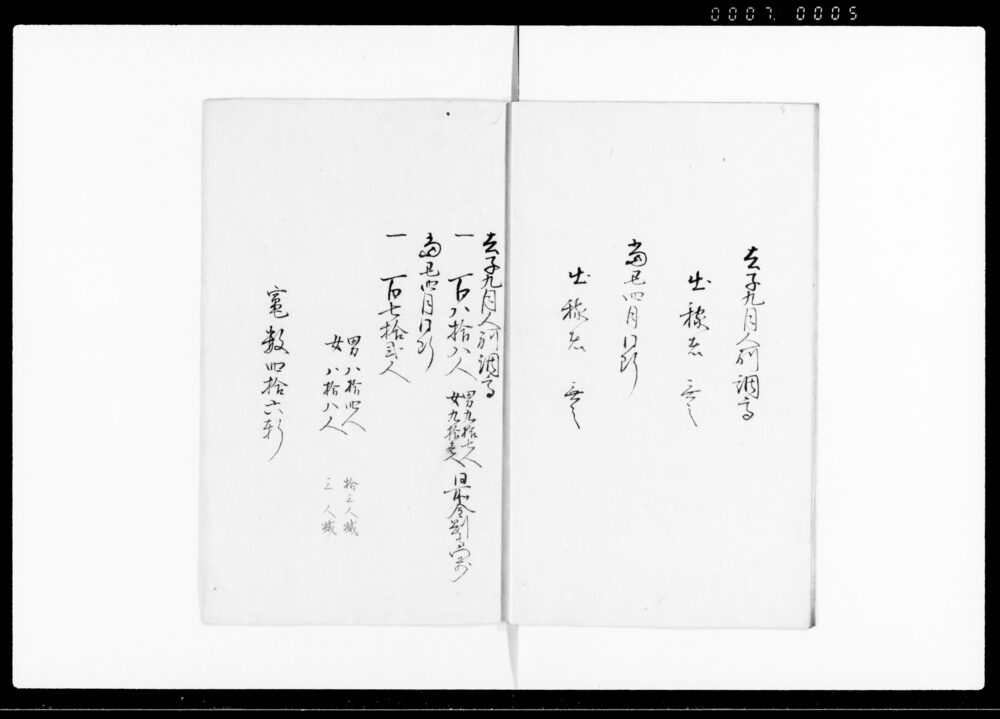 0007 0005
去子九月人別調高
出稼者 無之
当巳四月同断
出稼者 無之
去子九月人別調高
一 百八拾八人 男九拾七人
女九拾壱人
当巳四月同断
一 百七拾弐人
男八拾四人 拾三人減
女八拾八人 三人減
竃数四拾六軒